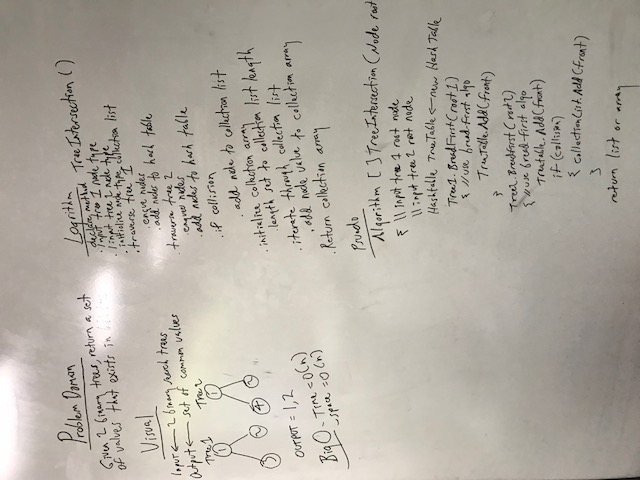 Problem Domain
Given 2 binary trees, return a set
of values that exists in
Visual
Input ← 2 binary search trees
Output ← set of common values
Tree1 Tree2
1 1
3 2 4 2
OUTPUT = 1,2
Big O - Time = O(n)
- space = O(n)
Logrithm
declare method TreeIntersection()
. Input tree 1 node type
. Input tree 2 node type
. initialize node type collection list
. traverse tree 1
. enque nodes
. add nodes to hash table
. traverse tree 2
. enques nodes
. add nodes to hash table
. if collision
. add node to collection list
. initialize collection array
. length set to collection list length
. iterate through collection list
. add node value to collection array
. Return collection array
Psuedo
Algorithm [] TreeIntersection(Node root
{ // input tree 1 root node
// input tree 2 root node
Hashtable TreeTable ← new Hash Table
Tree1.BreadFirst(root1)
{ // use bread-first algo
TreeTable.Add(front)
}
Tree2.Breadfirst(root2)
{ // use bread-first algo
Treetable.Add(front)
if (collision)
{ collectionList.Add(front)
}
return list or array